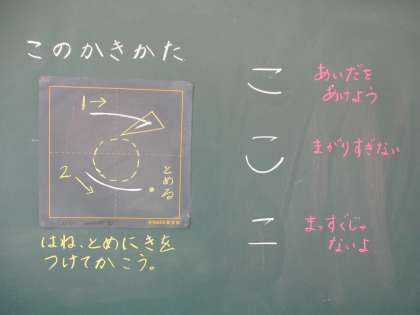 このかきかた
1→
2
とめる
はね、とめにきを
つけてかこう。
こ
あいだを
あけよう
こ
まがりすぎない
こ
まっすぐじゃ
ないよ